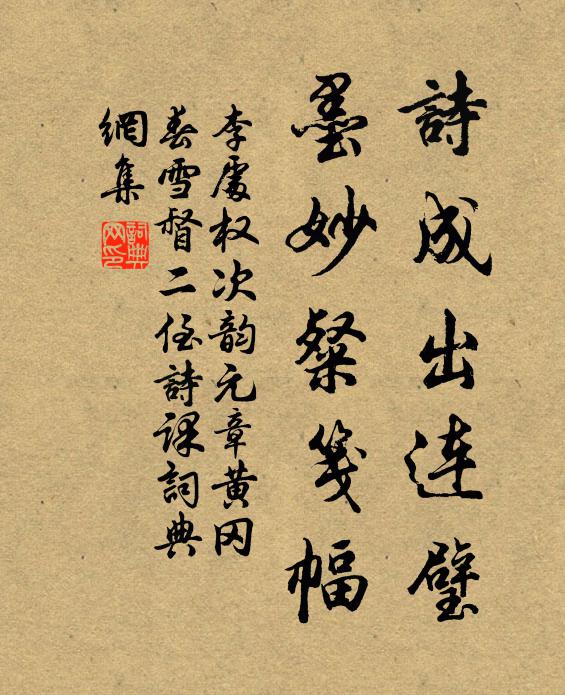 詩成出连璧
墨妙粲笺幅
李處权次韵元章黄冈
春雪督二侄詩课詞典
網集
詞典网印